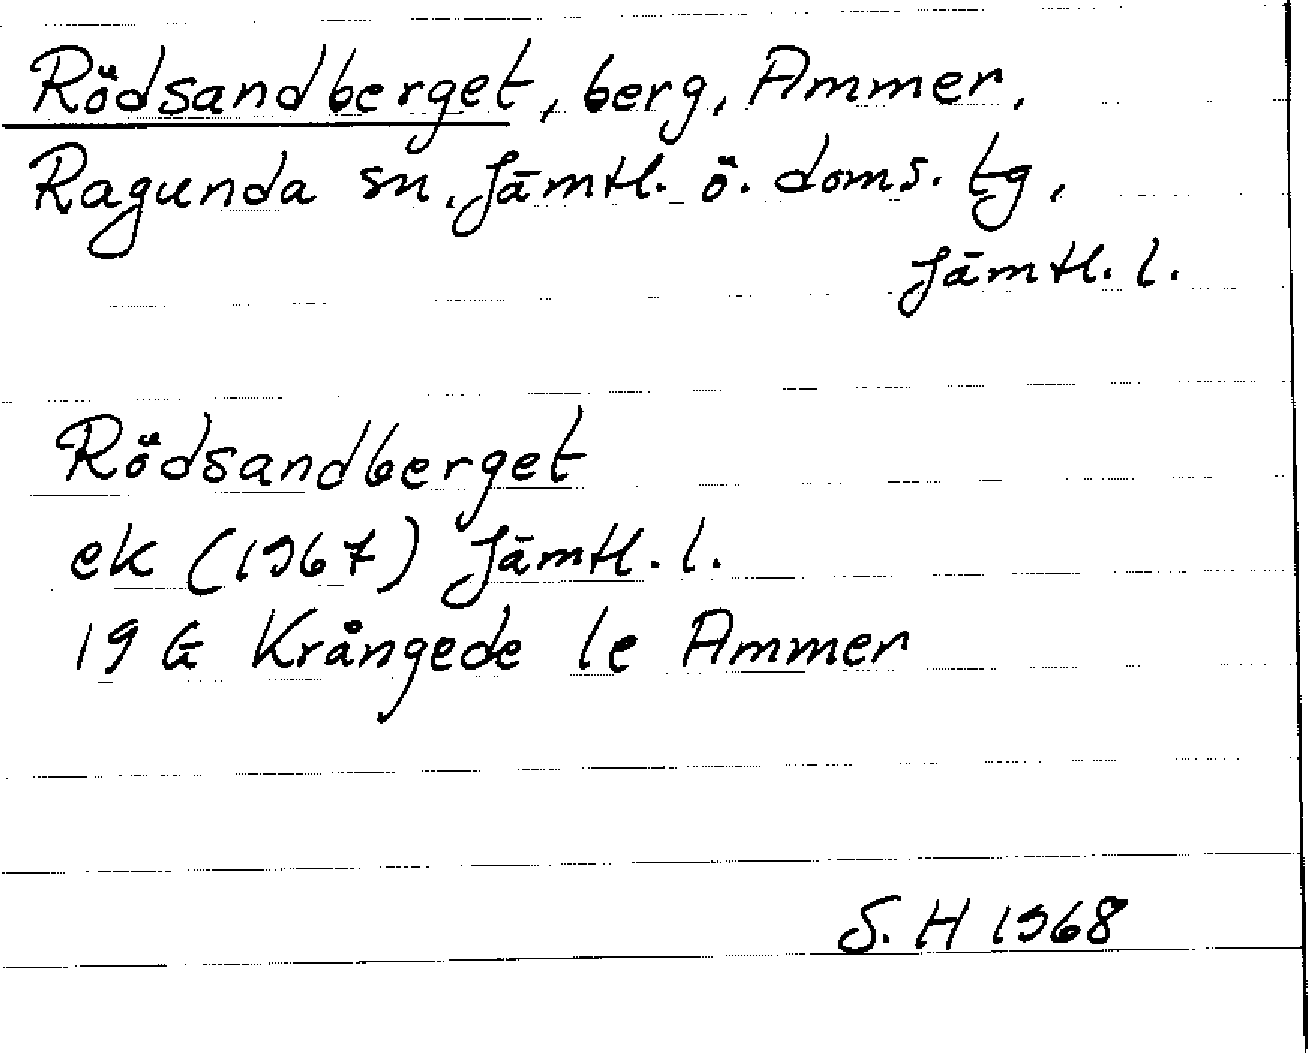 Rödsandberget, berg, Ammer,
Ragunda sn. Jämtl. ö. doms. tg,
Jämtl. l.
Rödsandberget
ek (1967) Jämtl. l.
19 G Krångede 1e Ammer
S. H 1968